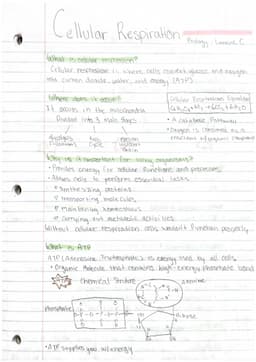 Cellular Respiration
Biology: Lecture C
What is cellular respiration?
Cellular respiration is where cells convert glucose and oxygen
into carbon dioxide, water, and energy (ATP)
Where does it occur?
It occurs in the mitochondria
Divided into 3 main steps
Glycolysis
Krebs
Cycle
Electron
Chain
Cellular Respiration Equation
C6H12O6 + 6O2 → 6CO2 + 6H2O
• A catabolic Pathway
• Oxygen is consumed as a
reactant
Why is it important for living organisms?
• Provides energy for cellular functions and processes
• Allows cells to perform essential tasks
synthesizing proteins
transporting molecules
Maintaining homeostasis
Carrying out metabolic activities
Without cellular respiration cells wouldn't function properly
What is ATP
ATP (Adenosine Triphosphate) is energy used by all cells
• Organic Molecule that contains high-energy phosphate bond
Chemical Structure
adenine
Phosphate
ribose
• ATP supplies you w/ energy